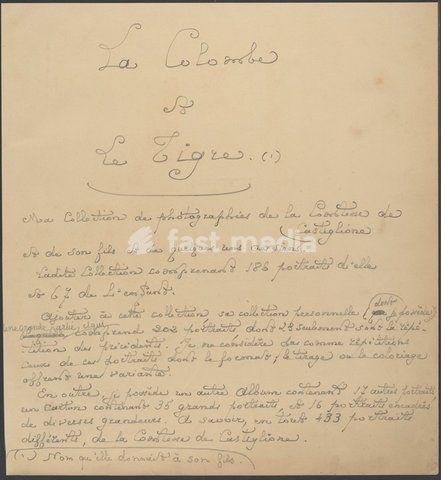 La Colombe
&
Le Tigre. (1)
Ma Collection de photographies de la Comtesse de
Castiglione
& de son fils & de
fast media
Ladite Collection comprenant 186 portraits d'elle
& 67 de l'enfant.
Ajoutez à cette collection sa collection personnelle (dont
je possède
une grande partie
comprend 202 portraits dont 28 seulement sont la répé-
tition des précédents. Je ne considère pas comme répétitions
ceux de ces portraits dont le format; le tirage ou le coloriage
offrent une variante.
En outre je possède un autre Album contenant 17 autres portraits
un Carton contenant 35 grands portraits, & 16 portraits encadrés
de diverses grandeurs. À savoir, en tout 433 portraits
différents, de la Comtesse de Castiglione.
(1) Nom qu'elle donnait à son fils.